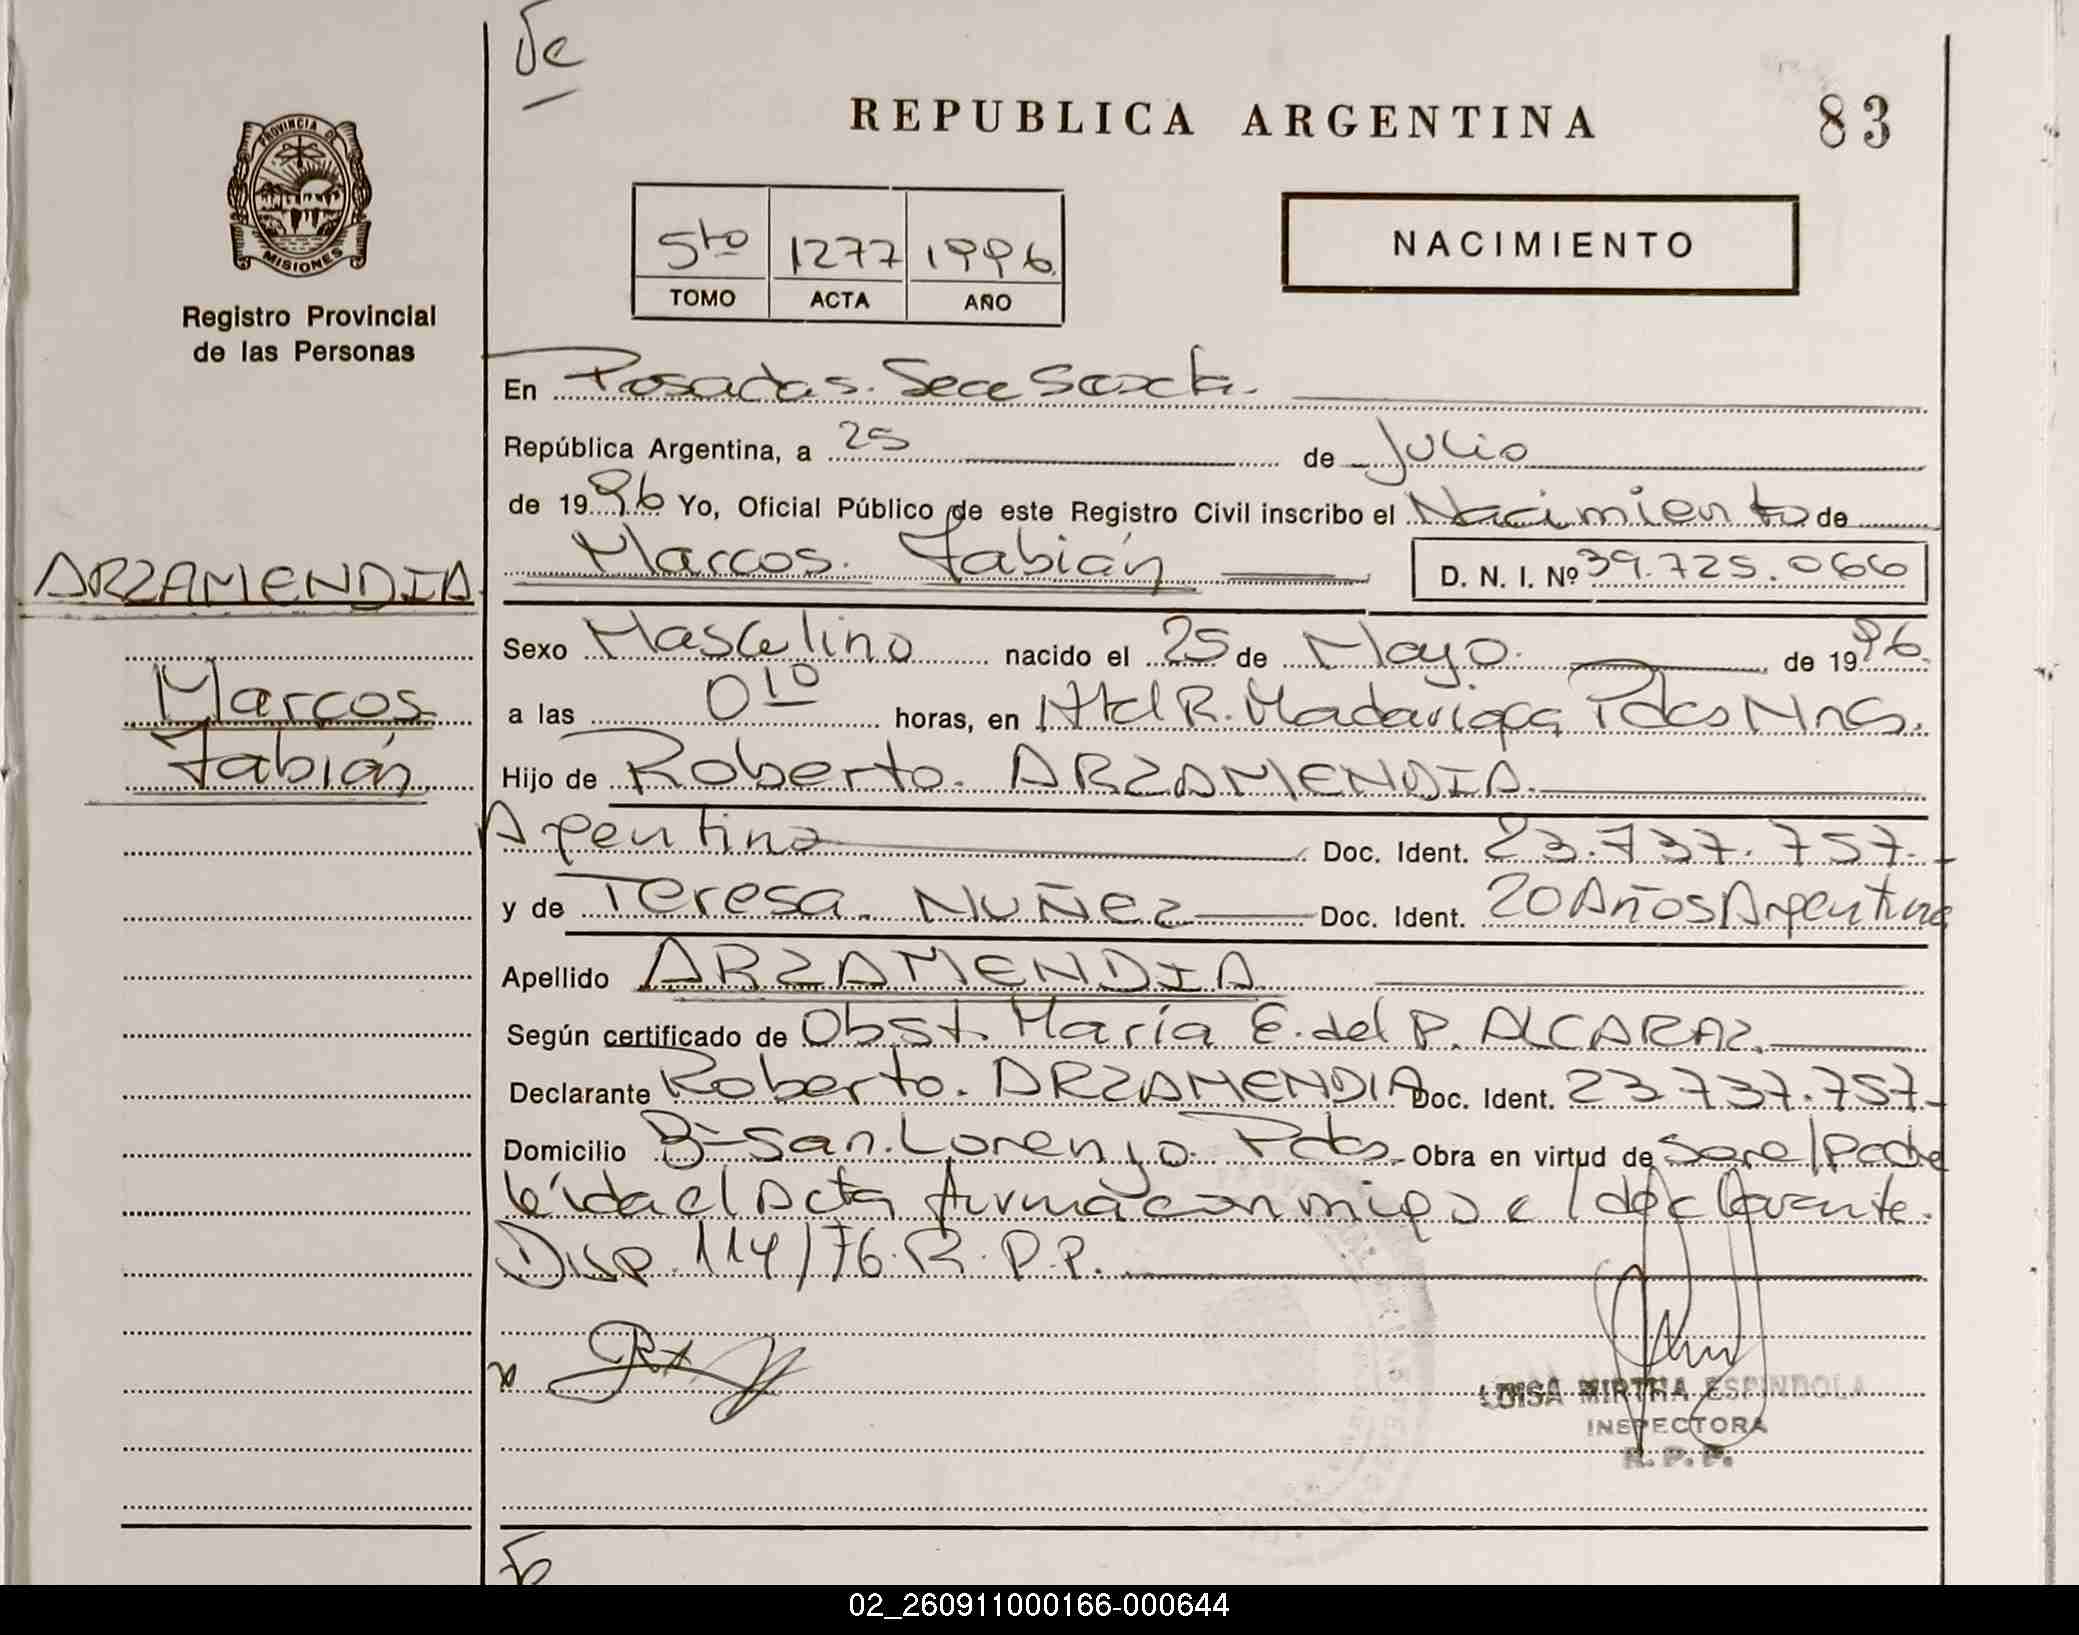 REPUBLICA ARGENTINA
83
PROVINCIA DE
MISIONES
Registro Provincial
de las Personas
5to 1277 1996
TOMO ACTA AÑO
NACIMIENTO
En Posadas. Secc Sexta.
República Argentina, a 25 de Julio
de 1996 Yo, Oficial Público de este Registro Civil inscribo el Nacimiento de
Marcos. Fabián D. N. I. Nº 39.725.066
ARZAMENDIA
Marcos
Fabián
Sexo Masculino nacido el 25 de Mayo. de 1996.
a las 0 10 horas, en Htal R. Madariaga Pdas Mnes.
Hijo de Roberto. ARZAMENDIA.
Argentino Doc. Ident. 23.737.757.
y de Teresa. NUÑEZ Doc. Ident. 20 Años Argentina
Apellido ARZAMENDIA
Según certificado de Obst. María E. del P. ALCARAZ.
Declarante Roberto. ARZAMENDIA Doc. Ident. 23.737.757.
Domicilio Bº San. Lorenzo. Pdas. Obra en virtud de ser el padre
leída el Acta firma conmigo el declarante.
Disp. 114/76. R. P. P.
LUISA MIRTHA ESPINDOLA
INSPECTORA
R. P. P.
02_260911000166-000644